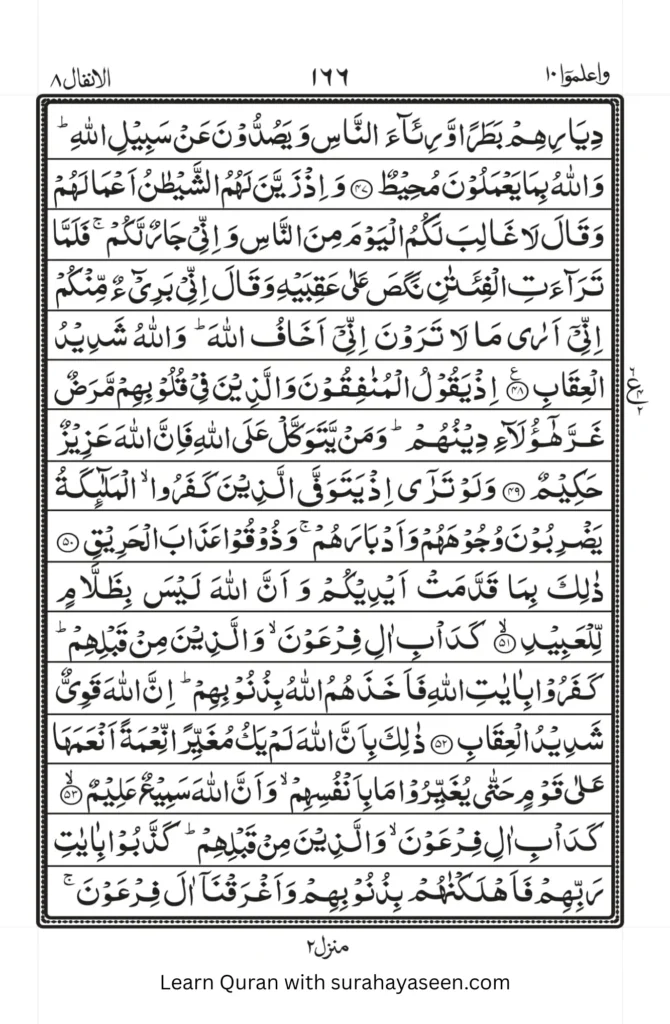 واعلموا ١٠ ١٦٦ الانفال ٨
دِيَارِهِمْ بَطَرًا وَّرِئَآءَ النَّاسِ وَيَصُدُّوْنَ عَنْ سَبِيْلِ اللّٰهِ ؕ
وَاللّٰهُ بِمَا يَعْمَلُوْنَ مُحِيْطٌ ﴿۴۷﴾ وَاِذْ زَيَّنَ لَهُمُ الشَّيْطٰنُ اَعْمَالَهُمْ
وَقَالَ لَا غَالِبَ لَكُمُ الْيَوْمَ مِنَ النَّاسِ وَاِنِّىْ جَارٌ لَّكُمْ ۚ فَلَمَّا
تَرَآءَتِ الْفِئَتٰنِ نَكَصَ عَلٰى عَقِبَيْهِ وَقَالَ اِنِّىْ بَرِىْٓءٌ مِّنْكُمْ
اِنِّىْٓ اَرٰى مَا لَا تَرَوْنَ اِنِّىْٓ اَخَافُ اللّٰهَ ؕ وَاللّٰهُ شَدِيْدُ
الْعِقَابِ ﴿۴۸﴾ ع اِذْ يَقُوْلُ الْمُنٰفِقُوْنَ وَالَّذِيْنَ فِىْ قُلُوْبِهِمْ مَّرَضٌ ۶ ع ۴ ۲
غَرَّ هٰٓؤُلَآءِ دِيْنُهُمْ ؕ وَمَنْ يَّتَوَكَّلْ عَلَى اللّٰهِ فَاِنَّ اللّٰهَ عَزِيْزٌ
حَكِيْمٌ ﴿۴۹﴾ وَلَوْ تَرٰٓى اِذْ يَتَوَفَّى الَّذِيْنَ كَفَرُوا ۙ الْمَلٰٓئِكَةُ
يَضْرِبُوْنَ وُجُوْهَهُمْ وَاَدْبَارَهُمْ ۚ وَذُوْقُوْا عَذَابَ الْحَرِيْقِ ﴿۵۰﴾
ذٰلِكَ بِمَا قَدَّمَتْ اَيْدِيْكُمْ وَاَنَّ اللّٰهَ لَيْسَ بِظَلَّامٍ
لِّلْعَبِيْدِ ۙ﴿۵۱﴾ كَدَاْبِ اٰلِ فِرْعَوْنَ ۙ وَالَّذِيْنَ مِنْ قَبْلِهِمْ ؕ
كَفَرُوْا بِاٰيٰتِ اللّٰهِ فَاَخَذَهُمُ اللّٰهُ بِذُنُوْبِهِمْ ؕ اِنَّ اللّٰهَ قَوِىٌّ
شَدِيْدُ الْعِقَابِ ﴿۵۲﴾ ذٰلِكَ بِاَنَّ اللّٰهَ لَمْ يَكُ مُغَيِّرًا نِّعْمَةً اَنْعَمَهَا
عَلٰى قَوْمٍ حَتّٰى يُغَيِّرُوْا مَا بِاَنْفُسِهِمْ ۙ وَاَنَّ اللّٰهَ سَمِيْعٌ عَلِيْمٌ ۙ﴿۵۳﴾
كَدَاْبِ اٰلِ فِرْعَوْنَ ۙ وَالَّذِيْنَ مِنْ قَبْلِهِمْ ؕ كَذَّبُوْا بِاٰيٰتِ
رَبِّهِمْ فَاَهْلَكْنٰهُمْ بِذُنُوْبِهِمْ وَاَغْرَقْنَاۤ اٰلَ فِرْعَوْنَ ۚ
منزل ٢
Learn Quran with surahayaseen.com